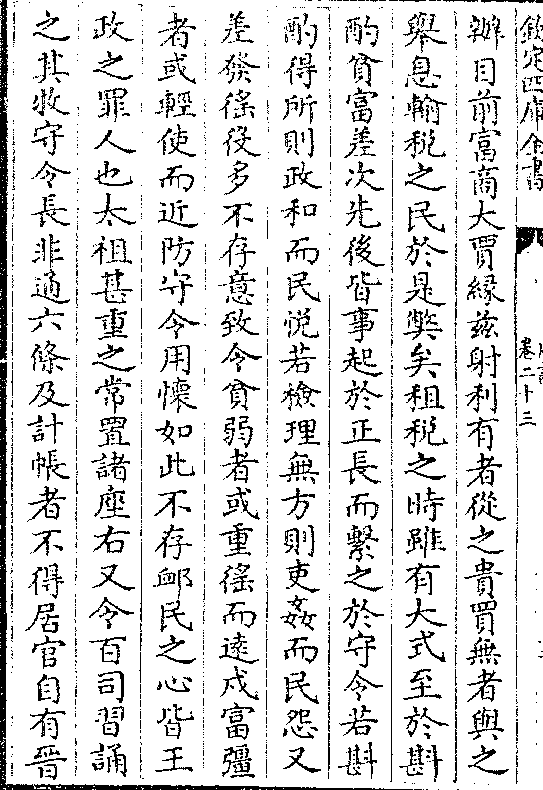 欽定四庫全書
卷二十三
辦目前富商大賈緣兹射利有者從之貴買無者與之
舉息輸稅之民於是弊矣租稅之時雖有大式至於斟
酌貧富差次先後皆事起於正長而繫之於守令若斟
酌得所則政和而民悅若檢理無方則吏姦而民怨又
差發徭役多不存意致令貧弱者或重徭而逺戍富彊
者或輕使而近防守令用懷如此不存䘏民之心皆王
政之罪人也太祖甚重之常置諸座右又令百司習誦
之其牧守令長非通六條及計帳者不得居官自有晉